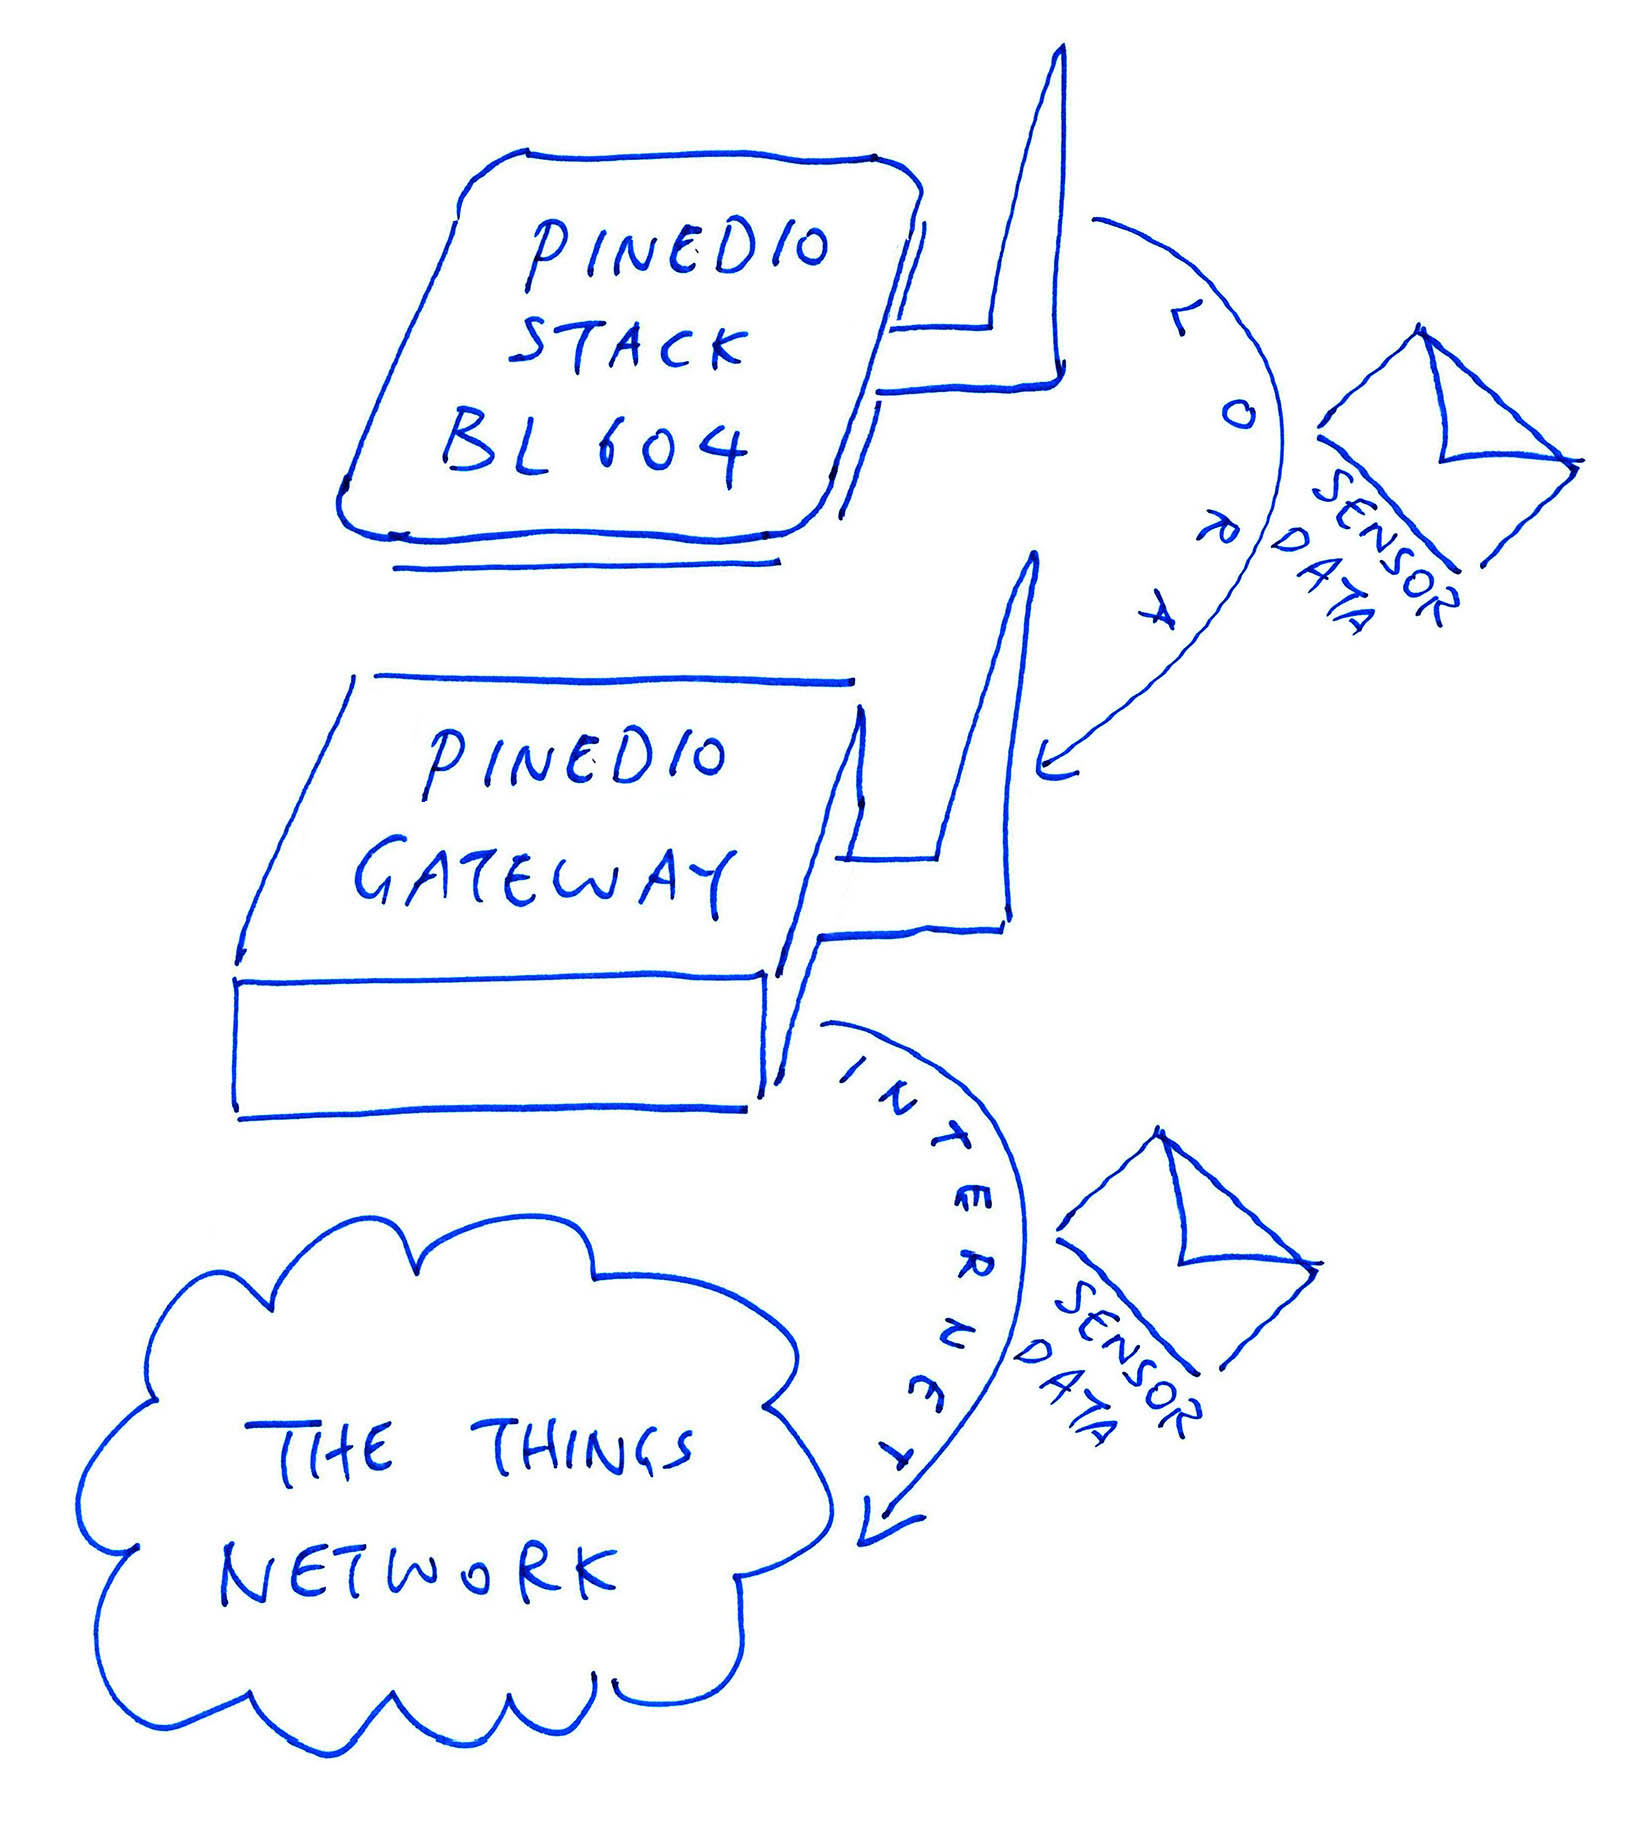 PINEDIO
STACK
BL604
LORA
SENSOR
DATA
PINEDIO
GATEWAY
INTERNET
SENSOR
DATA
THE THINGS
NETWORK